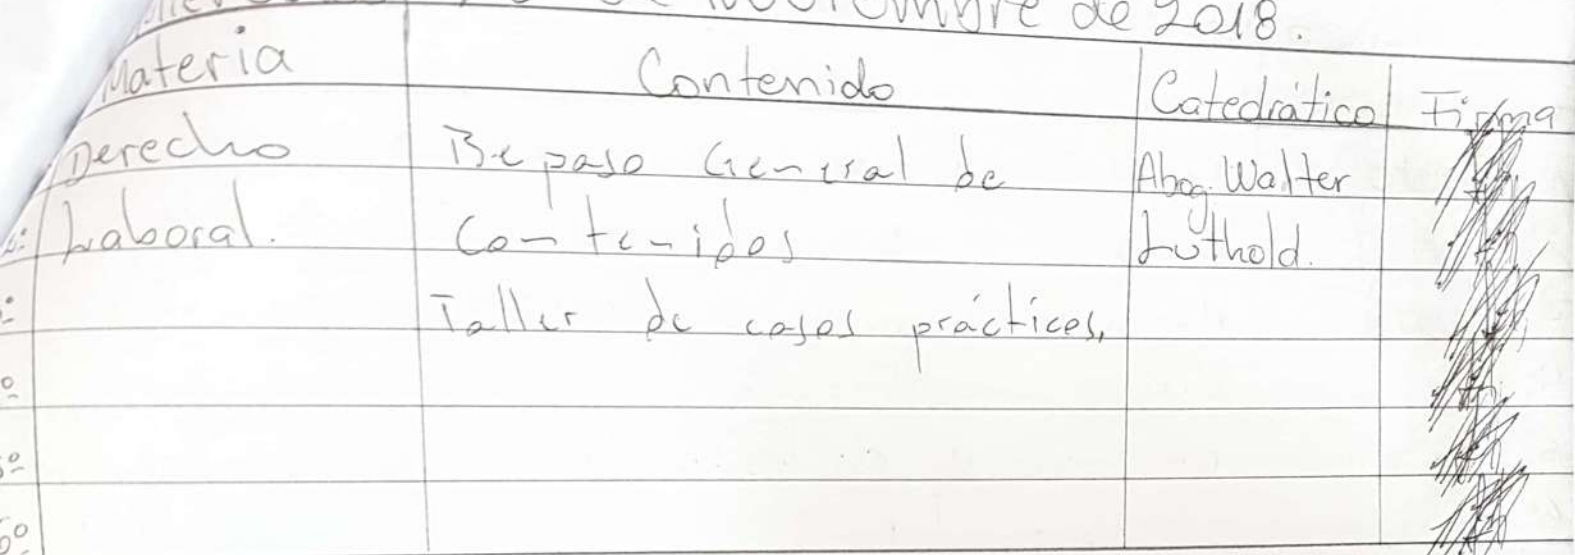 Noviembre de 2018.
Materia Contenido Catedrático Firma
Derecho Repaso General de Abog. Walter
Laboral. Contenidos Luthold.
Taller de casos prácticos.